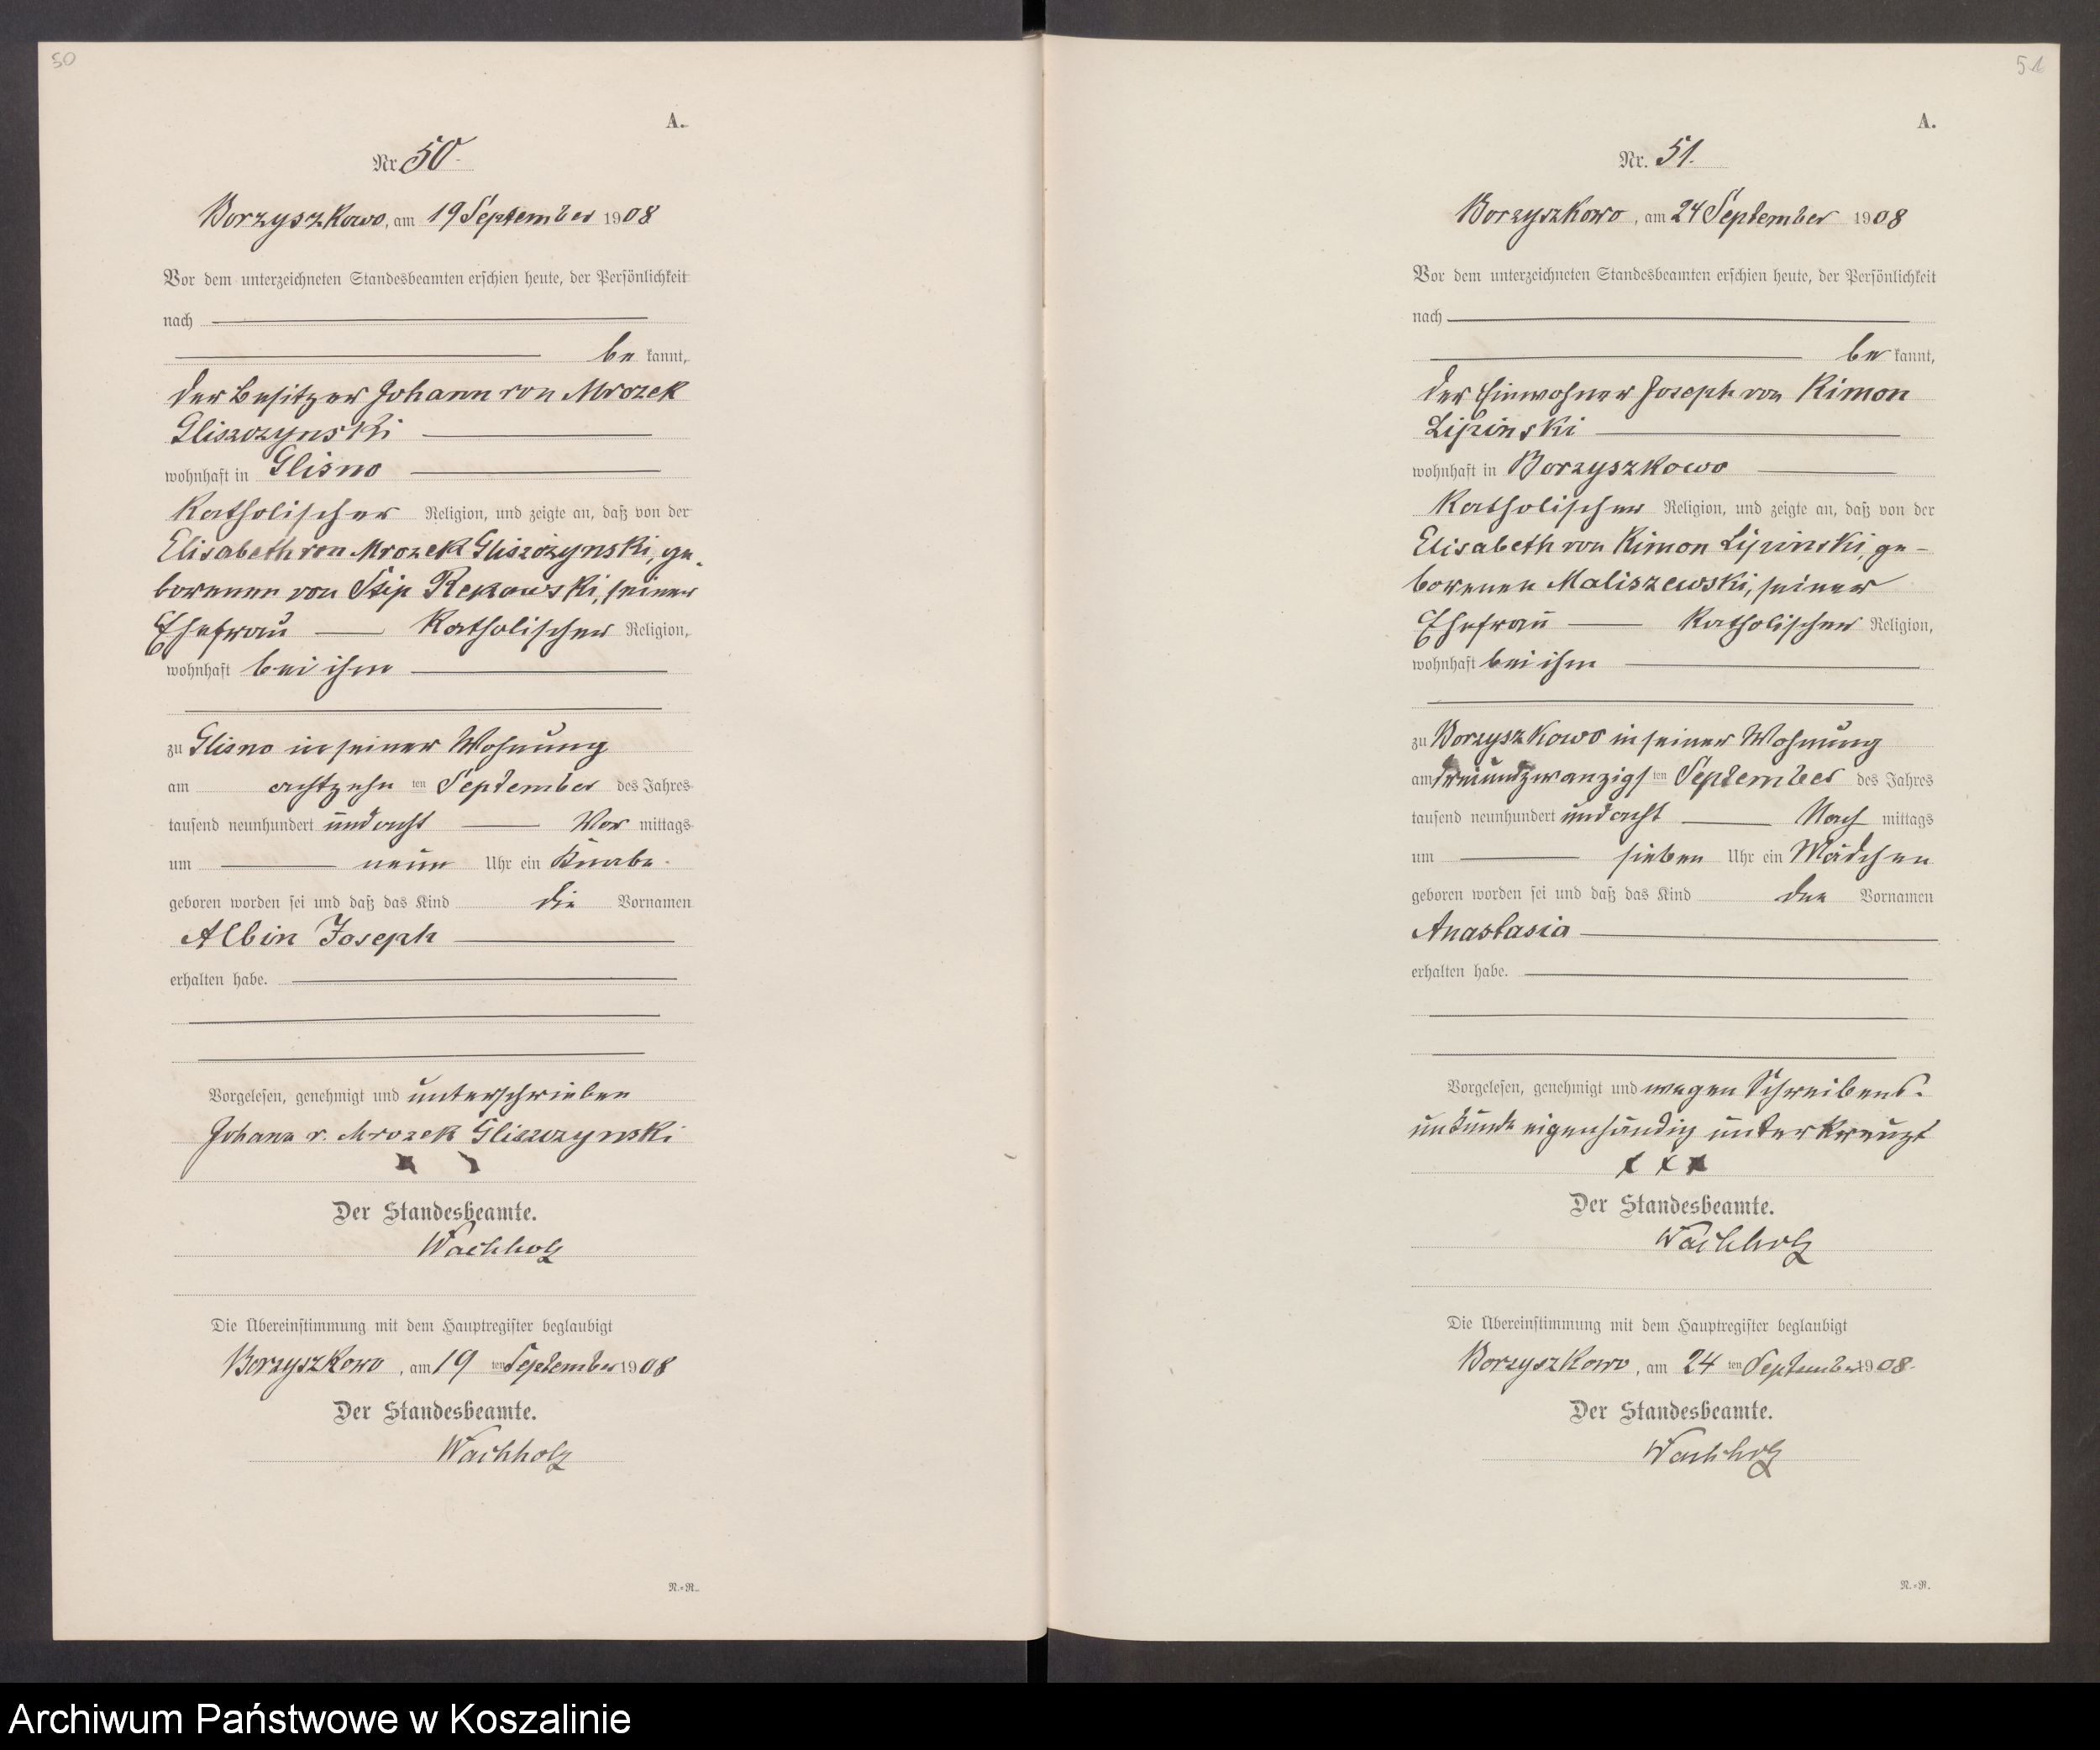 50
A.
Nr. 50
Borzyszkowo, am 19 September 1908
Vor dem unterzeichneten Standesbeamten erschien heute, der Persönlichkeit
nach
be kannt,
der Besitzer Johann von Mrozek
Gliszczynski
wohnhaft in Glisno
Katholischer Religion, und zeigte an, daß von der
Elisabeth von Mrozek Gliszczynski, ge-
borenen von Rekowski, seiner
Ehefrau Katholischer Religion,
wohnhaft bei ihm
zu Glisno in seiner Wohnung
am achtzehn ten September des Jahres
tausend neunhundert und acht Vor mittags
um neun Uhr ein Knabe
geboren worden sei und daß das Kind die Vornamen
Albin Joseph
erhalten habe.
Vorgelesen, genehmigt und unterschrieben
Johann v. Mrozek Gliszczynski
Der Standesbeamte.
Wachholz
Die Übereinstimmung mit dem Hauptregister beglaubigt
Borzyszkowo, am 19 ten September 1908
Der Standesbeamte.
Wachholz
N.=R.
51
A.
Nr. 51.
Borzyszkowo, am 24 September 1908
Vor dem unterzeichneten Standesbeamten erschien heute, der Persönlichkeit
nach
be kannt,
der Einwohner Joseph von Kimon
Lipinski
wohnhaft in Borzyszkowo
Katholischer Religion, und zeigte an, daß von der
Elisabeth von Kimon Lipinski, ge-
borenen Maliszewski, seiner
Ehefrau Katholischer Religion,
wohnhaft bei ihm
zu Borzyszkowo in seiner Wohnung
am dreiundzwanzigs ten September des Jahres
tausend neunhundert und acht Nach mittags
um sieben Uhr ein Mädchen
geboren worden sei und daß das Kind den Vornamen
Anastasia
erhalten habe.
Vorgelesen, genehmigt und wegen Schreibens-
unkunde eigenhändig unterkreuzt
x x x
Der Standesbeamte.
Wachholz
Die Übereinstimmung mit dem Hauptregister beglaubigt
Borzyszkowo, am 24 ten September 1908
Der Standesbeamte.
Wachholz
N.=R.
Archiwum Państwowe w Koszalinie